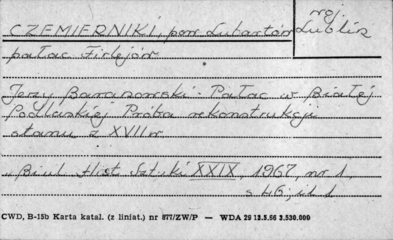 woj.
CZEMIERNIKI, pow. Lubartów Lublin
pałac Firlejów
Jerzy Baranowski: Pałac w Białej
Podlaskiej Próba rekonstrukcji
stanu z XVII w.
"Biul. Hist. Sztuki XXIX, 1967, nr 1,
s. 46, il. 1
CWD, B-15b Karta katal. (z liniat.) nr 877/ZW/P — WDA 29 13.5.66 3.530.000